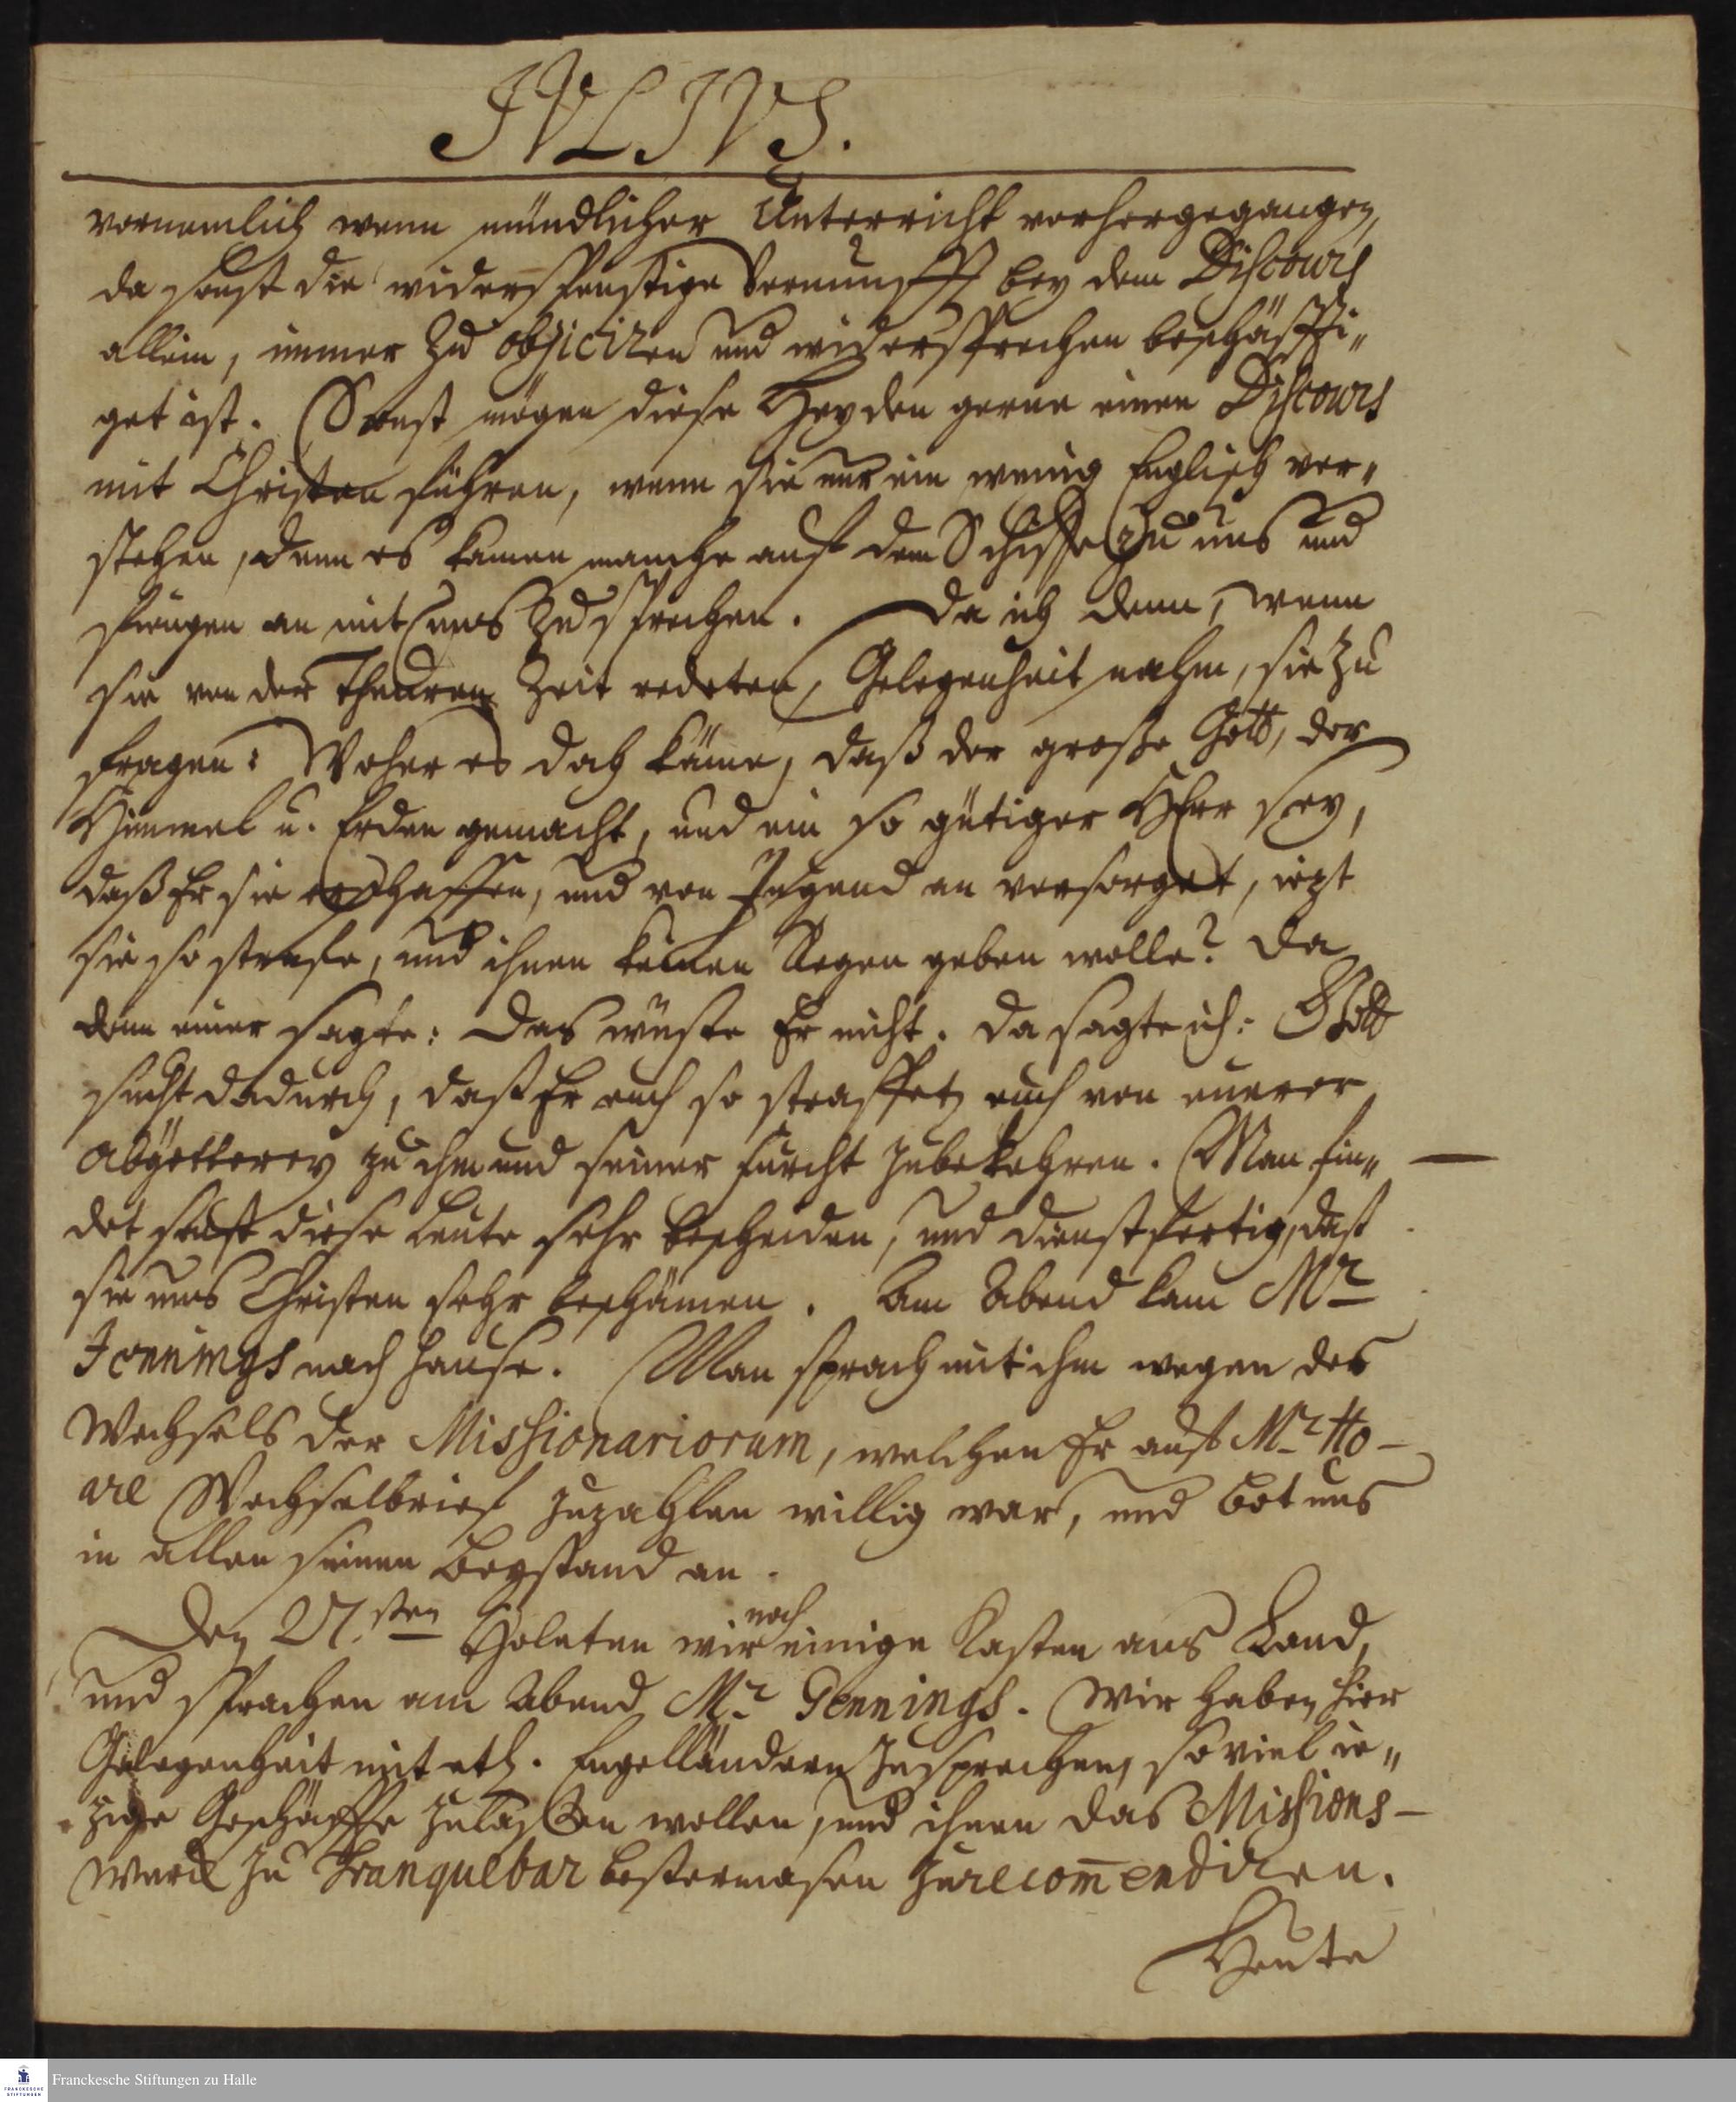 JVLIVS.
vornemlich wenn mündlicher Unterricht vorhergegangen,
da sonst die widerspenstige Vernunfft bey dem Discours
allein, immer zu objiciren und widersprechen beschäffti„
get ist. Sonst mögen diese Heyden gerne einen Discours
mit Christen führen, wenn sie nur ein wenig Englisch ver„
stehen, denn es kamen manche auf dem Schiffe zu uns und
fiengen an mit uns zu sprechen. Da ich denn, wenn
sie von der Theuren Zeit redeten, Gelegenheit nahm, sie zu
fragen: Woher es doch käme, daß der große Gott, der
Himmel u. Erden gemacht, und ein so gütiger HErr sey,
daß Er sie erschaffen, und von Jugend an versorget, iezt
sie so strafe, und ihnen keinen Regen geben wolle? Da
denn einer sagte: Das wüste Er nicht. Da sagte ich: Gott
sucht dadurch, daß Er euch so straffet, euch von eurer
Abgötterey zu ihm und seiner Furcht zubekehren. Man fin„
det sonst diese Leute sehr bescheiden, und dienstfertig, daß
sie uns Christen sehr beschämen. Am Abend kam Mr
Jennings nach Hause. Man sprach mit ihm wegen des
Wechsels der Missionariorum, welchen Er auf Mr. Ho-
are Wechselbrief zuzahlen willig war, und bot uns
in allen seinen Beystand an.
Den 27.sten Holeten wir noch einige Kasten ans Land,
und sprachen am Abend Mr. Jennings. Wir haben hier
Gelegenheit mit etl. Engelländern zusprechen, so viel ie„
zige Geschäffte zulaßen wollen, und ihnen das Missions-
Werck zu Tranquebar bestermasen zurecom̅endiren.
Heute
Franckesche Stiftungen zu Halle
FRANCKESCHE
STIFTUNGEN